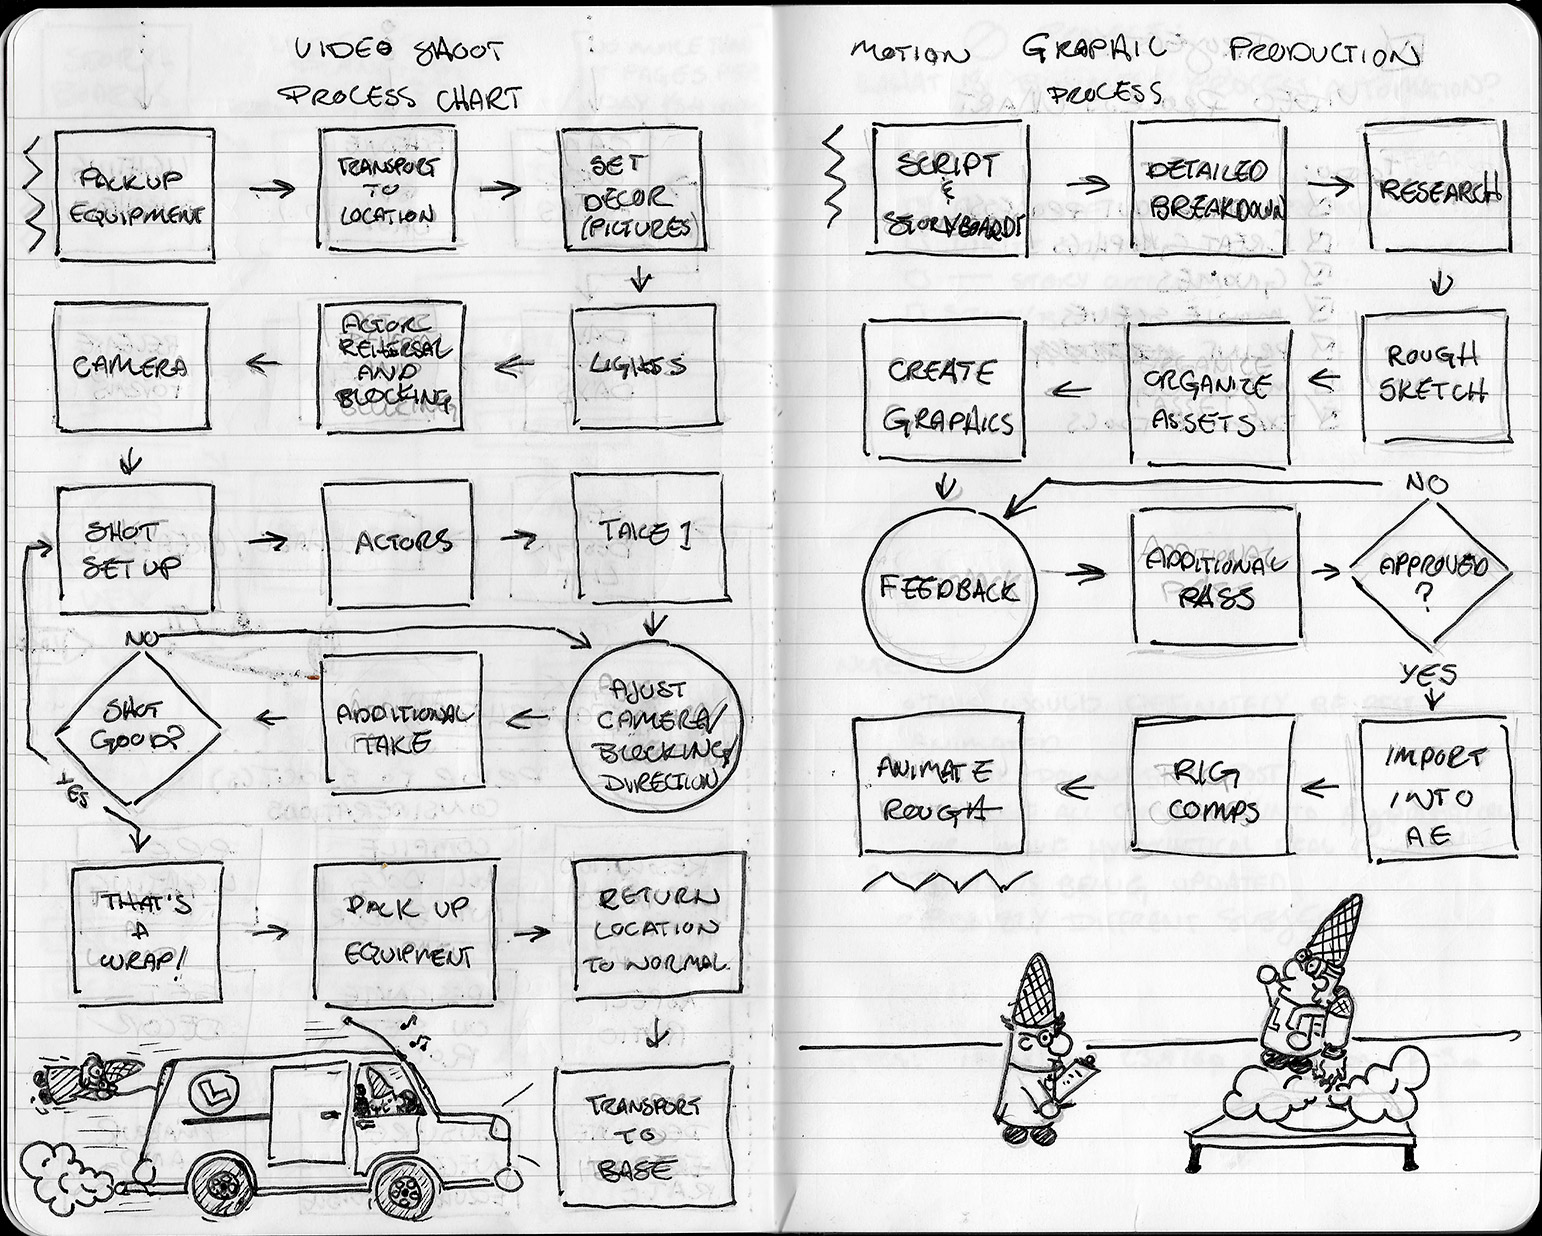 VIDEO SHOOT
PROCESS CHART
PACKUP
EQUIPMENT
TRANSPORT
TO
LOCATION
SET
DECOR
(PICTURES)
LIGHTS
ACTOR
REHERSAL
AND
BLOCKING
CAMERA
SHOT
SET UP
ACTORS
TAKE 1
AJUST
CAMERA/
BLOCKING/
DIRECTION
ADDITIONAL
TAKE
NO
SHOT
GOOD?
YES
THAT'S
A
WRAP!
PACK UP
EQUIPMENT
RETURN
LOCATION
TO NORMAL.
TRANSPORT
TO
BASE
L
MOTION GRAPHIC PRODUCTION
PROCESS
SCRIPT
&
STORYBOARDS
DETAILED
BREAKDOWN
RESEARCH
ROUGH
SKETCH
ORGANIZE
ASSETS
CREATE
GRAPHICS
FEEDBACK
ADDITIONAL
PASS
NO
APPROVED
?
YES
IMPORT
INTO
AE
RIG
COMPS
ANIMATE
ROUGH